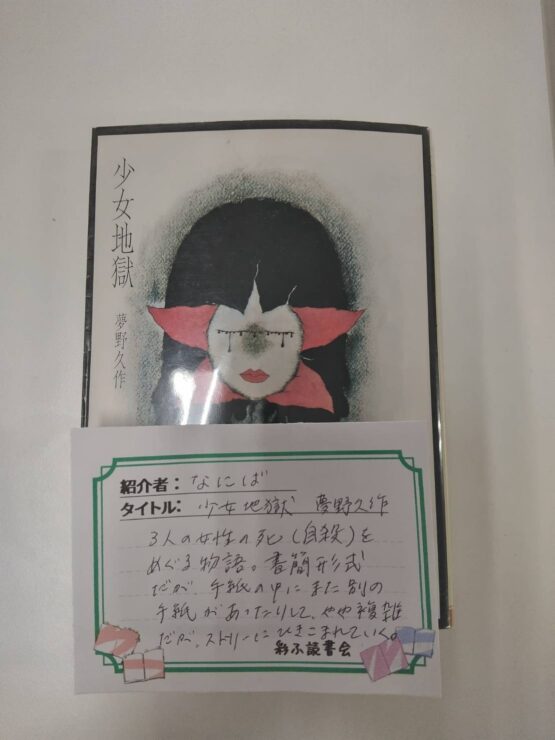 少女地獄
夢野久作
紹介者：なにば
タイトル：少女地獄 夢野久作
3人の女性の死(自殺)を
めぐる物語。書簡形式
だが、手紙の中にまた別の
手紙があったりして、やや複雑
だが、ストーリーにひきこまれていく。
彩ふ読書会